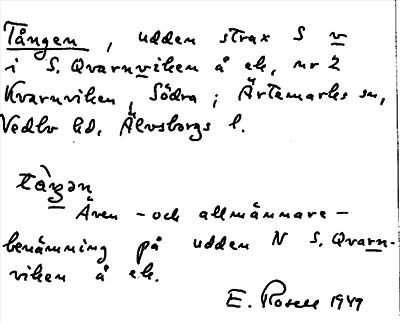 Tången, udden strax S v
i S. Qvarnviken å ek, nr 2
Kvarnviken, Södra; Ärtemarks sn,
Vedbo hd, Älvsborgs l.
tàŋən
Även - och allmännare -
benämning på udden N S. Qvarn-
viken å ek.
E. Rosell 1949